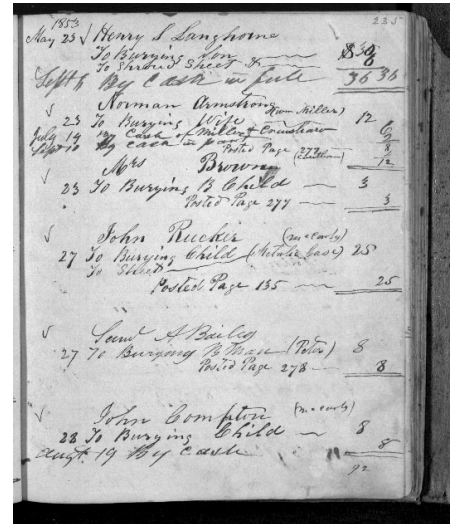 1853 235
May 23 √ Henry S Langhorne
To Burying Son
To Shroud Sheet &
Sept By Cash in full 36 36
√ Norman Armstrong
23 To Burying Wife 12
July 14 By Cash of Miller & Crenshaw 6
Sept 10 By Cash in part
Posted Page 277 12
√ Mrs Brown
23 To Burying B Child — 3
Posted Page 277 — 3
√ John Rucker
27 To Burying Child (Metalic Case) 25
To Sheet
Posted Page 135 — 25
√ Saml A Bailey
27 To Burying B Man (Peter) 8
Posted Page 278 — 8
√ John Compton
28 To Burying Child — 8
Augt 19 By Cash 8
92